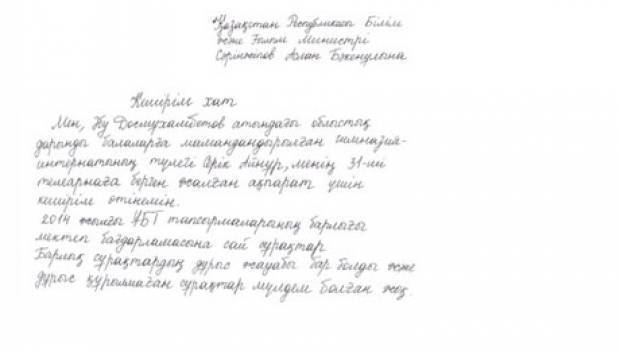 Қазақстан Республикасы Білім
және Ғылым Министрі
Сәрінжіпов Аслан Бәкенұлына
Кешірім хат
Мен, Жү Досмухамбетов атындағы облыстық
дарынды балаларға мамандандырылған гимназия-
интернатының түлегі Серік Айнұр, менің 31-ші
телеарнаға берген жалған ақпарат үшін
кешірім өтінемін.
2014 жылғы ҰБТ тапсырмаларының барлығы
мектеп бағдарламасына сай сұрақтар
Барлық сұрақтардың дұрыс жауабы бар болды және
дұрыс құрылмаған сұрақтар мүлдем болған жоқ.